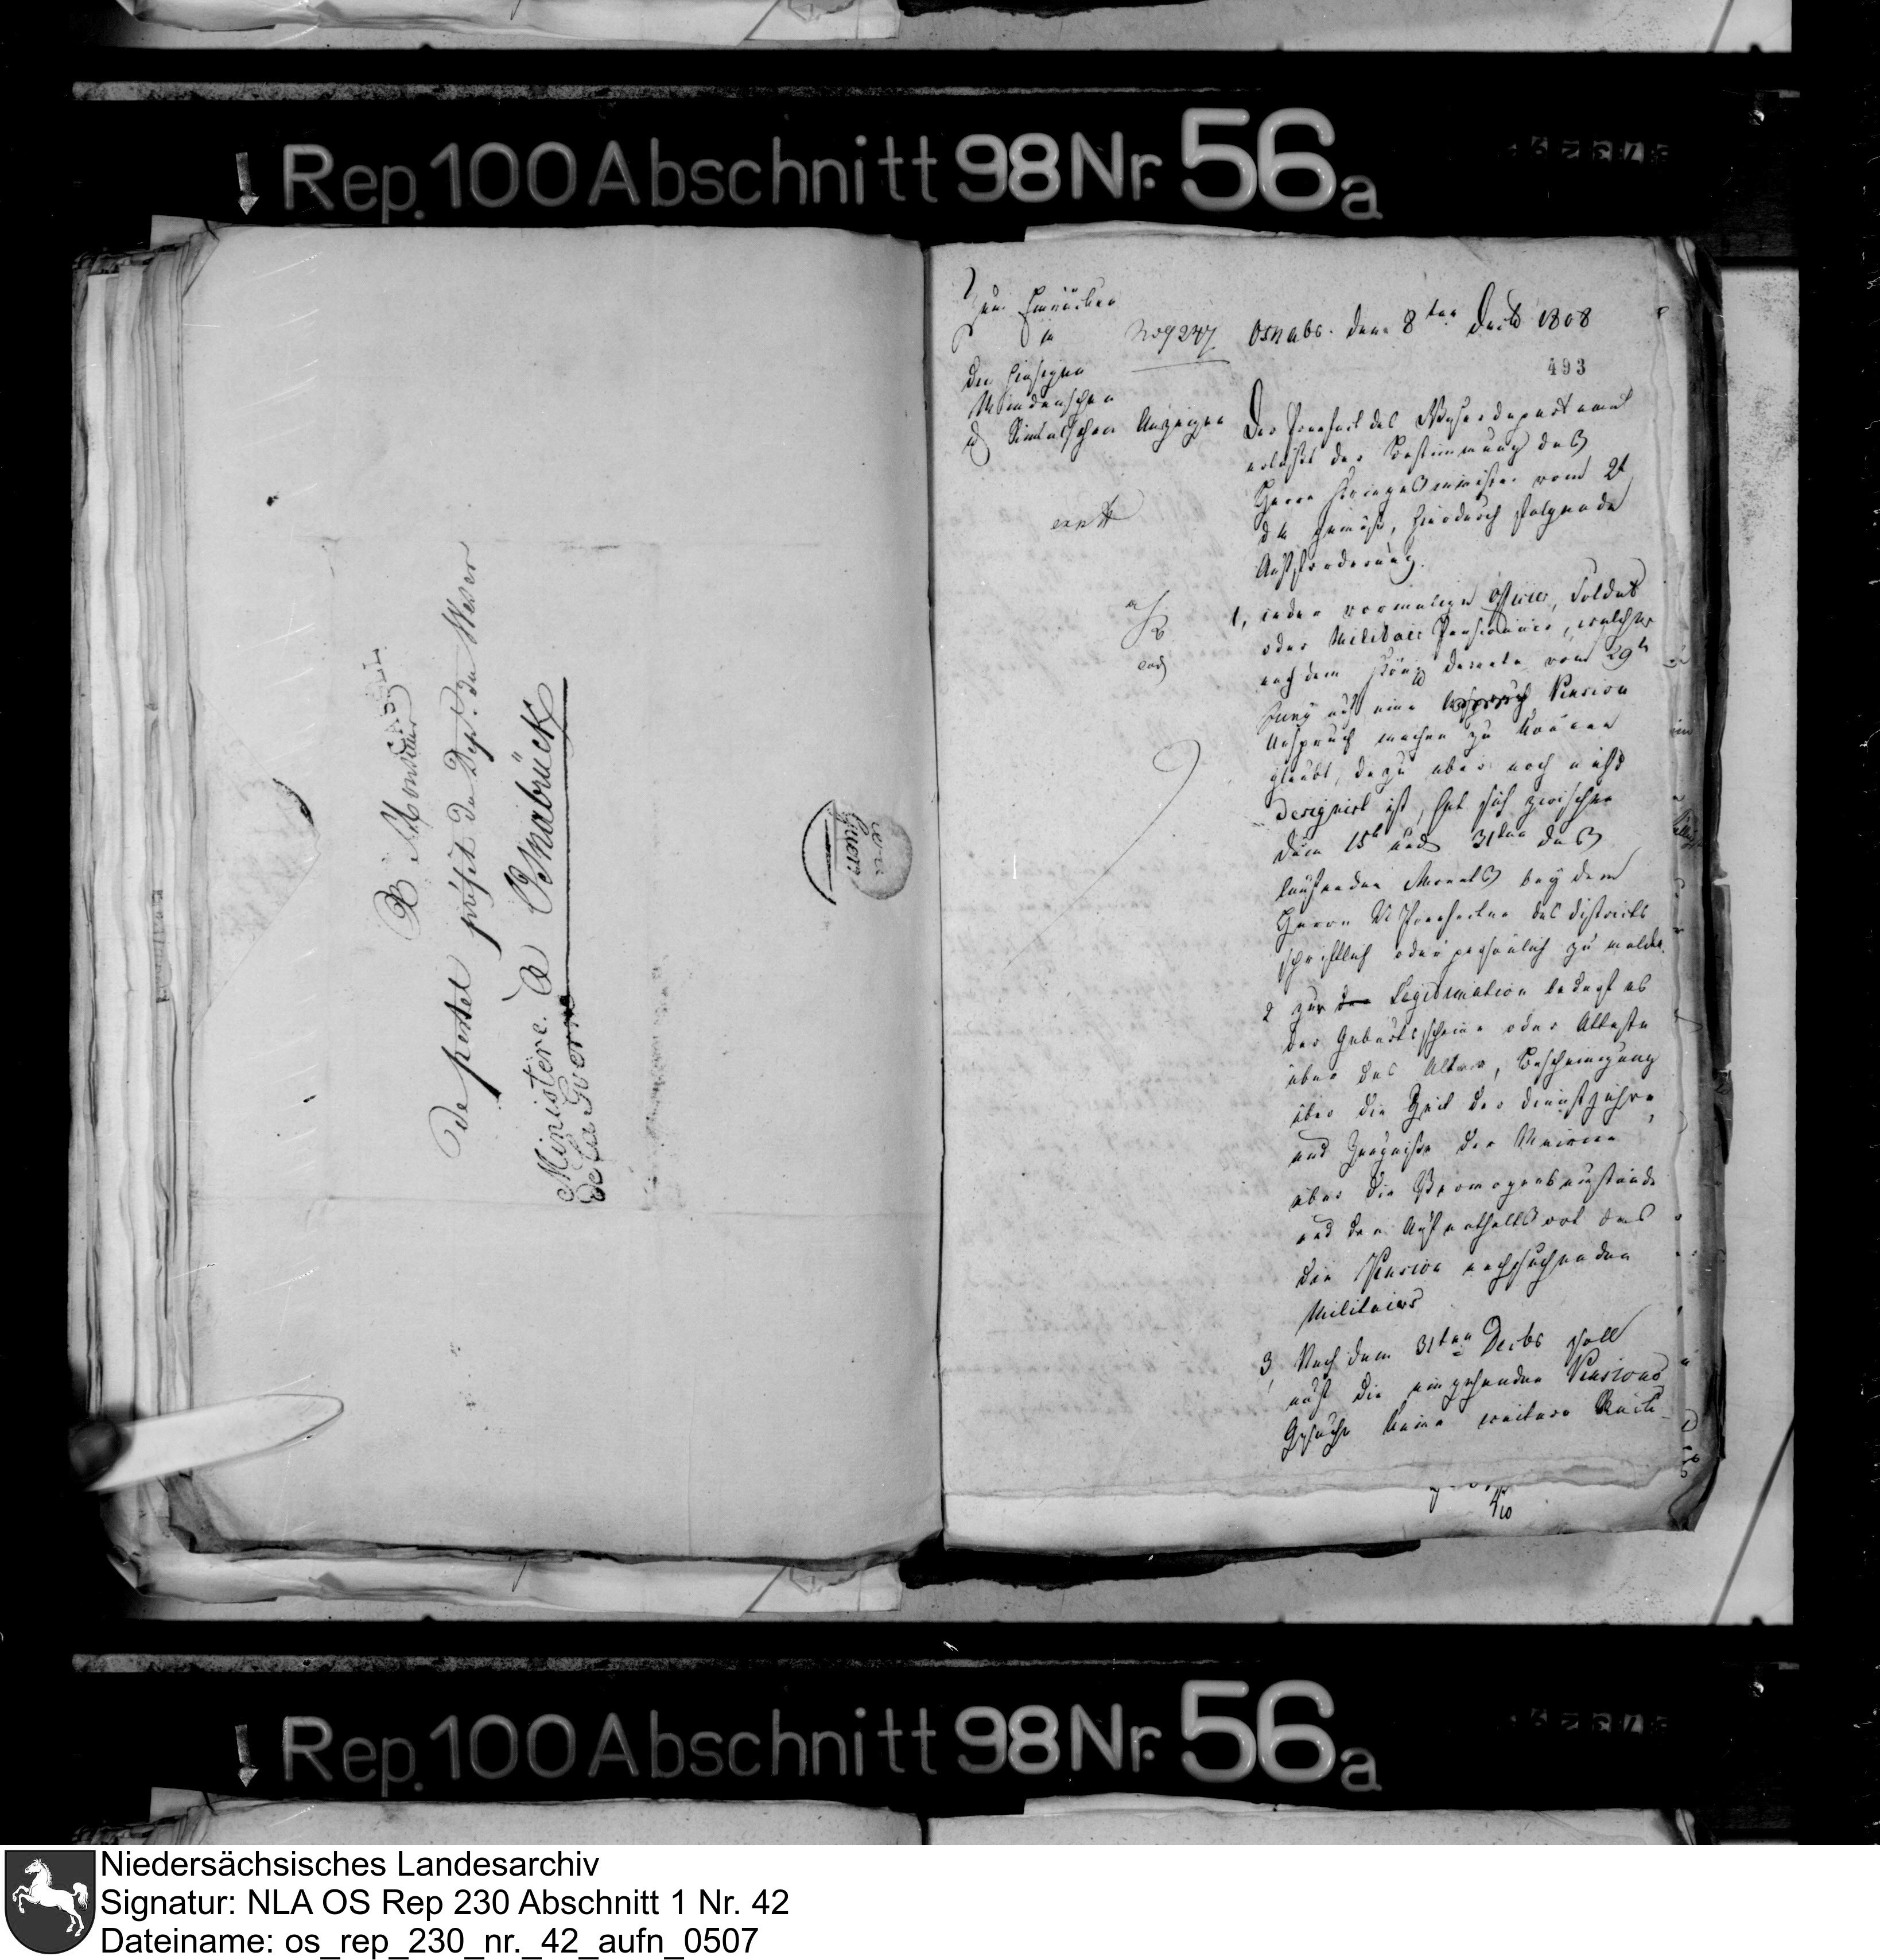 Rep. 100 Abschnitt 98 Nr. 56a
A Monsieur
de pestel préfet du Dept. du Weser
à Osnabrück
Ministère
de la Guerre
Zum Einrücken
in
No 9247
die hiesigen
Mindenschen
Anzeigen
Osnabr. den 8ten Decb 1808
493
Der Praefect des Weserdepartement
erläßt der Bestimmung des
Herrn Kriegesminister vom 2t
d M gemäß, hierdurch folgende
Aufforderung.
1, jeder vormalige Officier, Soldat
oder Militair Pensionair, welcher
nach dem Königl Decrete vom 29t
Juny auf eine Pension
Anspruch machen zu können
glaubt, dazu aber noch nicht
designirt ist, hat sich zwischen
dem 15t und 31ten des
laufenden Monats bey dem
Herrn U Praefecten des Districts
schriftlich oder persönlich zu melden.
2 zur der Legitimation bedarf es
der Geburtsscheine oder Atteste
über das Alter, Bescheinigung
über die Zeit der Dienstjahre,
und Zeugnisse der Mairien
über die Vermögensumstände
und den Aufenthaltsort des
die Pension nachsuchenden
Militairs
3, Nach dem 31ten Decbr soll
auf die eingehenden Pensions
Gesuche keine weitere Rück-
Rep. 100 Abschnitt 98 Nr. 56a
Niedersächsisches Landesarchiv
Signatur: NLA OS Rep 230 Abschnitt 1 Nr. 42
Dateiname: os_rep_230_nr._42_aufn_0507